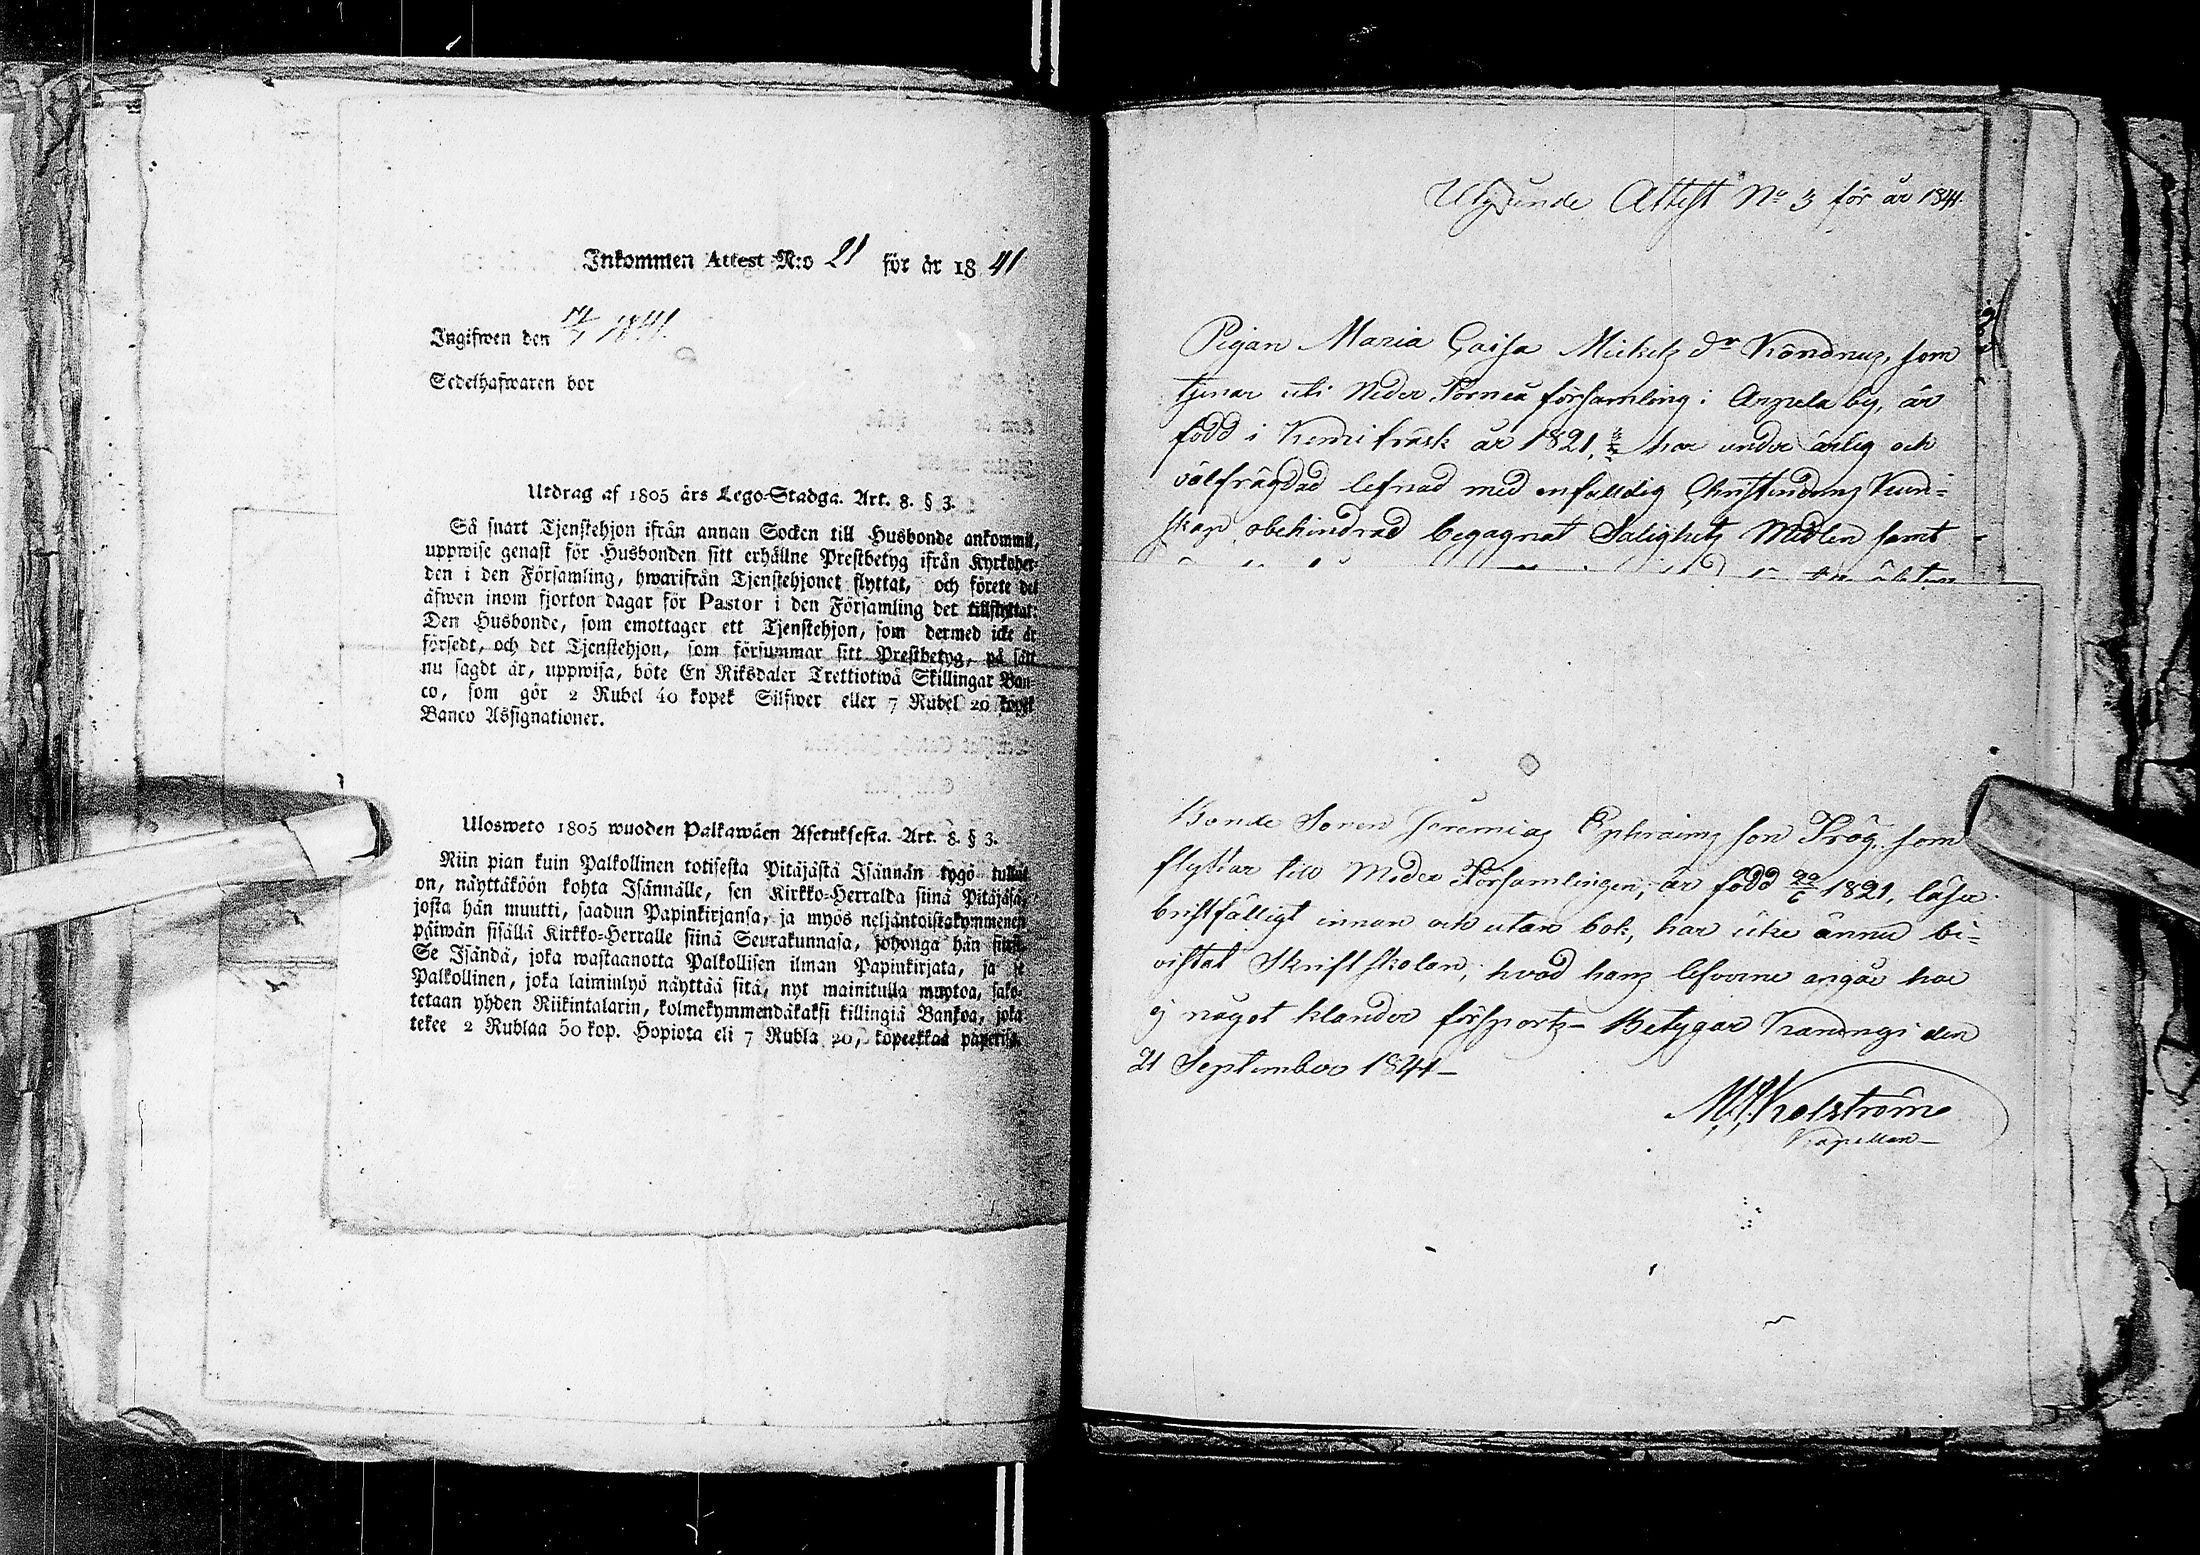 Inkommen Attest N:o 21 för år 1841
Ingifwen den 1841.
Sedelhafwaren bor
Utdrag af 1805 års Lego-Stadga. Art. 8. § 3.
Så snart Tjenstehjon ifrån annan Socken till Husbonde ankommit,
uppwise genast för Husbonden sitt erhållne Prestbetyg ifrån Kyrkoher-
den i den Församling, hwarifrån Tjenstehjonet flyttat, och förete det
äfwen inom fjorton dagar för Pastor i den Församling det tillflyttat.
Den Husbonde, som emottager ett Tjenstehjon, som dermed icke är
försedt, och det Tjenstehjon, som försummar sitt Prestbetyg, på sätt
nu sagdt är, uppwisa, böte En Riksdaler Trettiotwå Skillingar Ban-
co, som gör 2 Rubel 40 kopek Silfwer eller 7 Rubel 20 kopek
Banco Assignationer.
Ulosweto 1805 wuoden Palkawäen Asetuksesta. Art. 8. § 3.
Niin pian kuin Palkollinen toisesta Pitäjästä Isännän tygö tullut
on, näyttäköön kohta Isännälle, sen Kirkko-Herralda siinä Pitäjäsä,
josta hän muutti, saadun Papinkirjansa, ja myös neljäntoistakymmenen
päiwän sisällä Kirkko-Herralle siinä Seurakunnasa, johonga hän siirsi.
Se Isändä, joka wastaanotta Palkollisen ilman Papinkirjata, ja se
Palkollinen, joka laiminlyö näyttää sitä, nyt mainitulla muotoa, sako-
tetaan yhden Riikintalarin, kolmekymmendäkaksi killingiä Bankoa, joka
tekee 2 Rublaa 50 kop. Hopiota eli 7 Rubla 20, kopeekkaa paperisa.
Utgående Attest No 3 för år 1841.
Pigan Maria Caisa Mickels dr Köndnus, som
tjenar uti Neder Torneå församling i Arpela by, är
född i Kemi träsk år 1821, har under ärlig och
välfrägdad lefnad med enfalldig Christendoms Kun-
skap, obehindrad begagnat Salighets Medlen samt
Bonde Sonen Jeremias Ephraims son Frög som
flyttar till Neder Församlingen, är född 1821, läser
bristfälligt innan och utan bok, har icke ännu bi-
vistat Skriftskolan, hvad hans lefverne angår har
ej något klander försports – Betygar Karungi den
21 September 1841 –
Kolström
Kapellan –